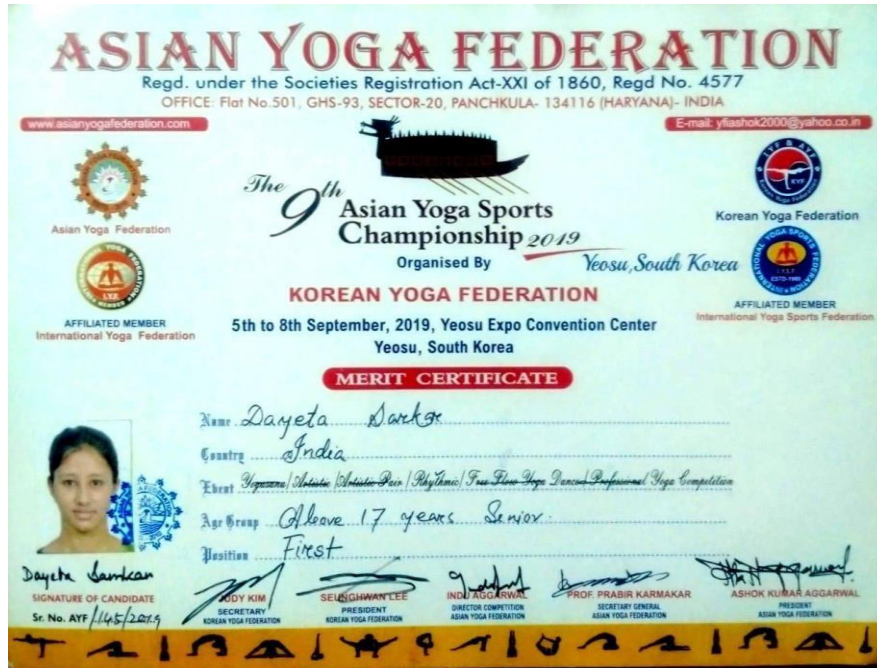 ASIAN YOGA FEDERATION
Regd. under the Societies Registration Act-XXI of 1860, Regd No. 4577
OFFICE: Flat No.501, GHS-93, SECTOR-20, PANCHKULA- 134116 (HARYANA)- INDIA
www.asianyogafederation.com
E-mail: yfiashok2000@yahoo.co.in
Asian Yoga Federation
AFFILIATED MEMBER
International Yoga Federation
The 9th
Asian Yoga Sports
Championship 2019
Yeosu, South Korea
Korean Yoga Federation
AFFILIATED MEMBER
International Yoga Sports Federation
Organised By
KOREAN YOGA FEDERATION
5th to 8th September, 2019, Yeosu Expo Convention Center
Yeosu, South Korea
MERIT CERTIFICATE
Name Dayeta Sarkar
Country India
Event Yogasana / Artistic / Artistic Pair / Rhythmic / Free Flow Yoga Dance / Professional Yoga Competition
Age Group Above 17 years Senior
Position First
Dayeta Sarkar
SIGNATURE OF CANDIDATE
Sr. No. AYF/145/2019
JODY KIM
SECRETARY
KOREAN YOGA FEDERATION
SEUNGHWAN LEE
PRESIDENT
KOREAN YOGA FEDERATION
INDU AGGARWAL
DIRECTOR COMPETITION
ASIAN YOGA FEDERATION
PROF. PRABIR KARMAKAR
SECRETARY GENERAL
ASIAN YOGA FEDERATION
ASHOK KUMAR AGGARWAL
PRESIDENT
ASIAN YOGA FEDERATION